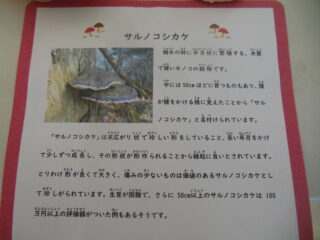 サルノコシカケ
樹木の幹に半月状に寄生する、木質
で硬いキノコの総称です。
中には50cmほどに育つものもあり、猿
が腰をかける様に見えたことから「サル
ノコシカケ」と名付けられています。
「サルノコシカケ」は末広がり状で珍しい形をしていること、長い年月をかけ
て少しずつ成長し、その形状が形作られることから縁起に良いとされています。
とりわけ形が良くて大きく、痛みの少ないものは価値のあるサルノコシカケとし
て珍しがられています。生育が困難で、さらに50cm以上のサルノコシカケは100
万円以上の評価額がついた例もあるそうです。